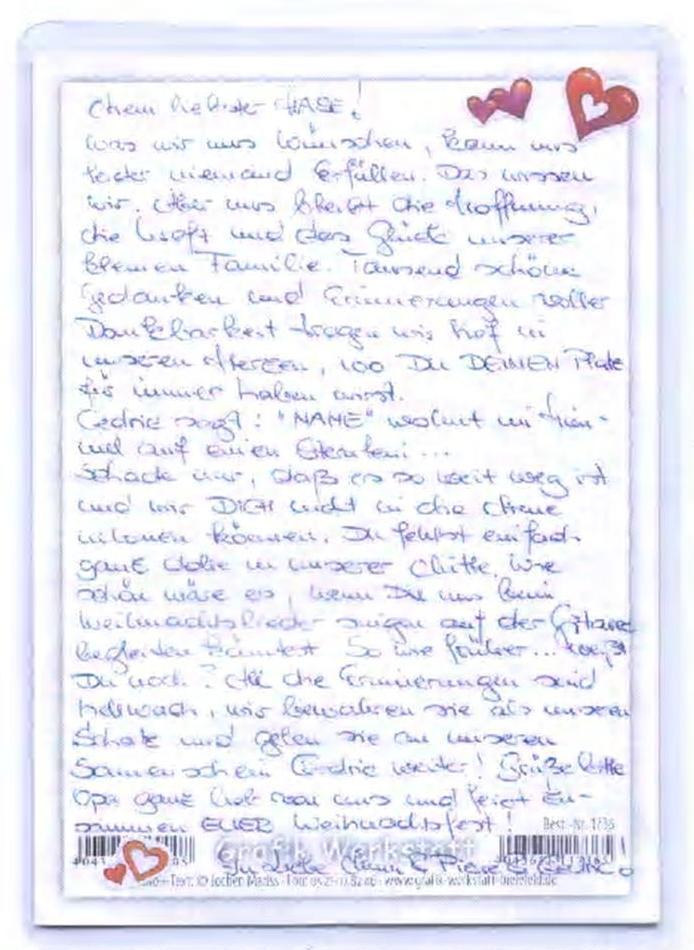 Mein liebster HASE!
was wir uns wünschen, kann uns
leider niemand erfüllen. Das wissen
wir. Aber uns bleibt die Hoffnung,
die Kraft und das Glück unserer
kleinen Familie. Tausend schöne
Gedanken und Erinnerungen voller
Dankbarkeit tragen wir tief in
unseren Herzen, wo Du DEINEN Platz
für immer haben wirst.
Cedric sagt: "NAME" wohnt im Him-
mel auf einen Sternlein...
Schade nur, daß es so weit weg ist
und wir DICH nicht in die Arme
nehmen können. Du fehlst einfach
ganz dolle in unserer Mitte. Wie
schön wäre es, wenn Du uns beim
Weihnachtslieder singen auf der Gitarre
begleiten könntest. So wie früher... weißt
Du noch? All die Erinnerungen sind
hellwach, wir bewahren sie als unseren
Schatz und geben sie an unseren
Sonnenschein Cedric weiter! Grüße bitte
Opa ganz lieb von uns und feiert zu-
sammen EUER Weihnachtsfest!
Best.-Nr. 1736
Grafik Werkstatt
In Liebe Mama & Pierre & Cedric
Foto+Text: © Jochen Mariss · www.grafik-werkstatt-bielefeld.de